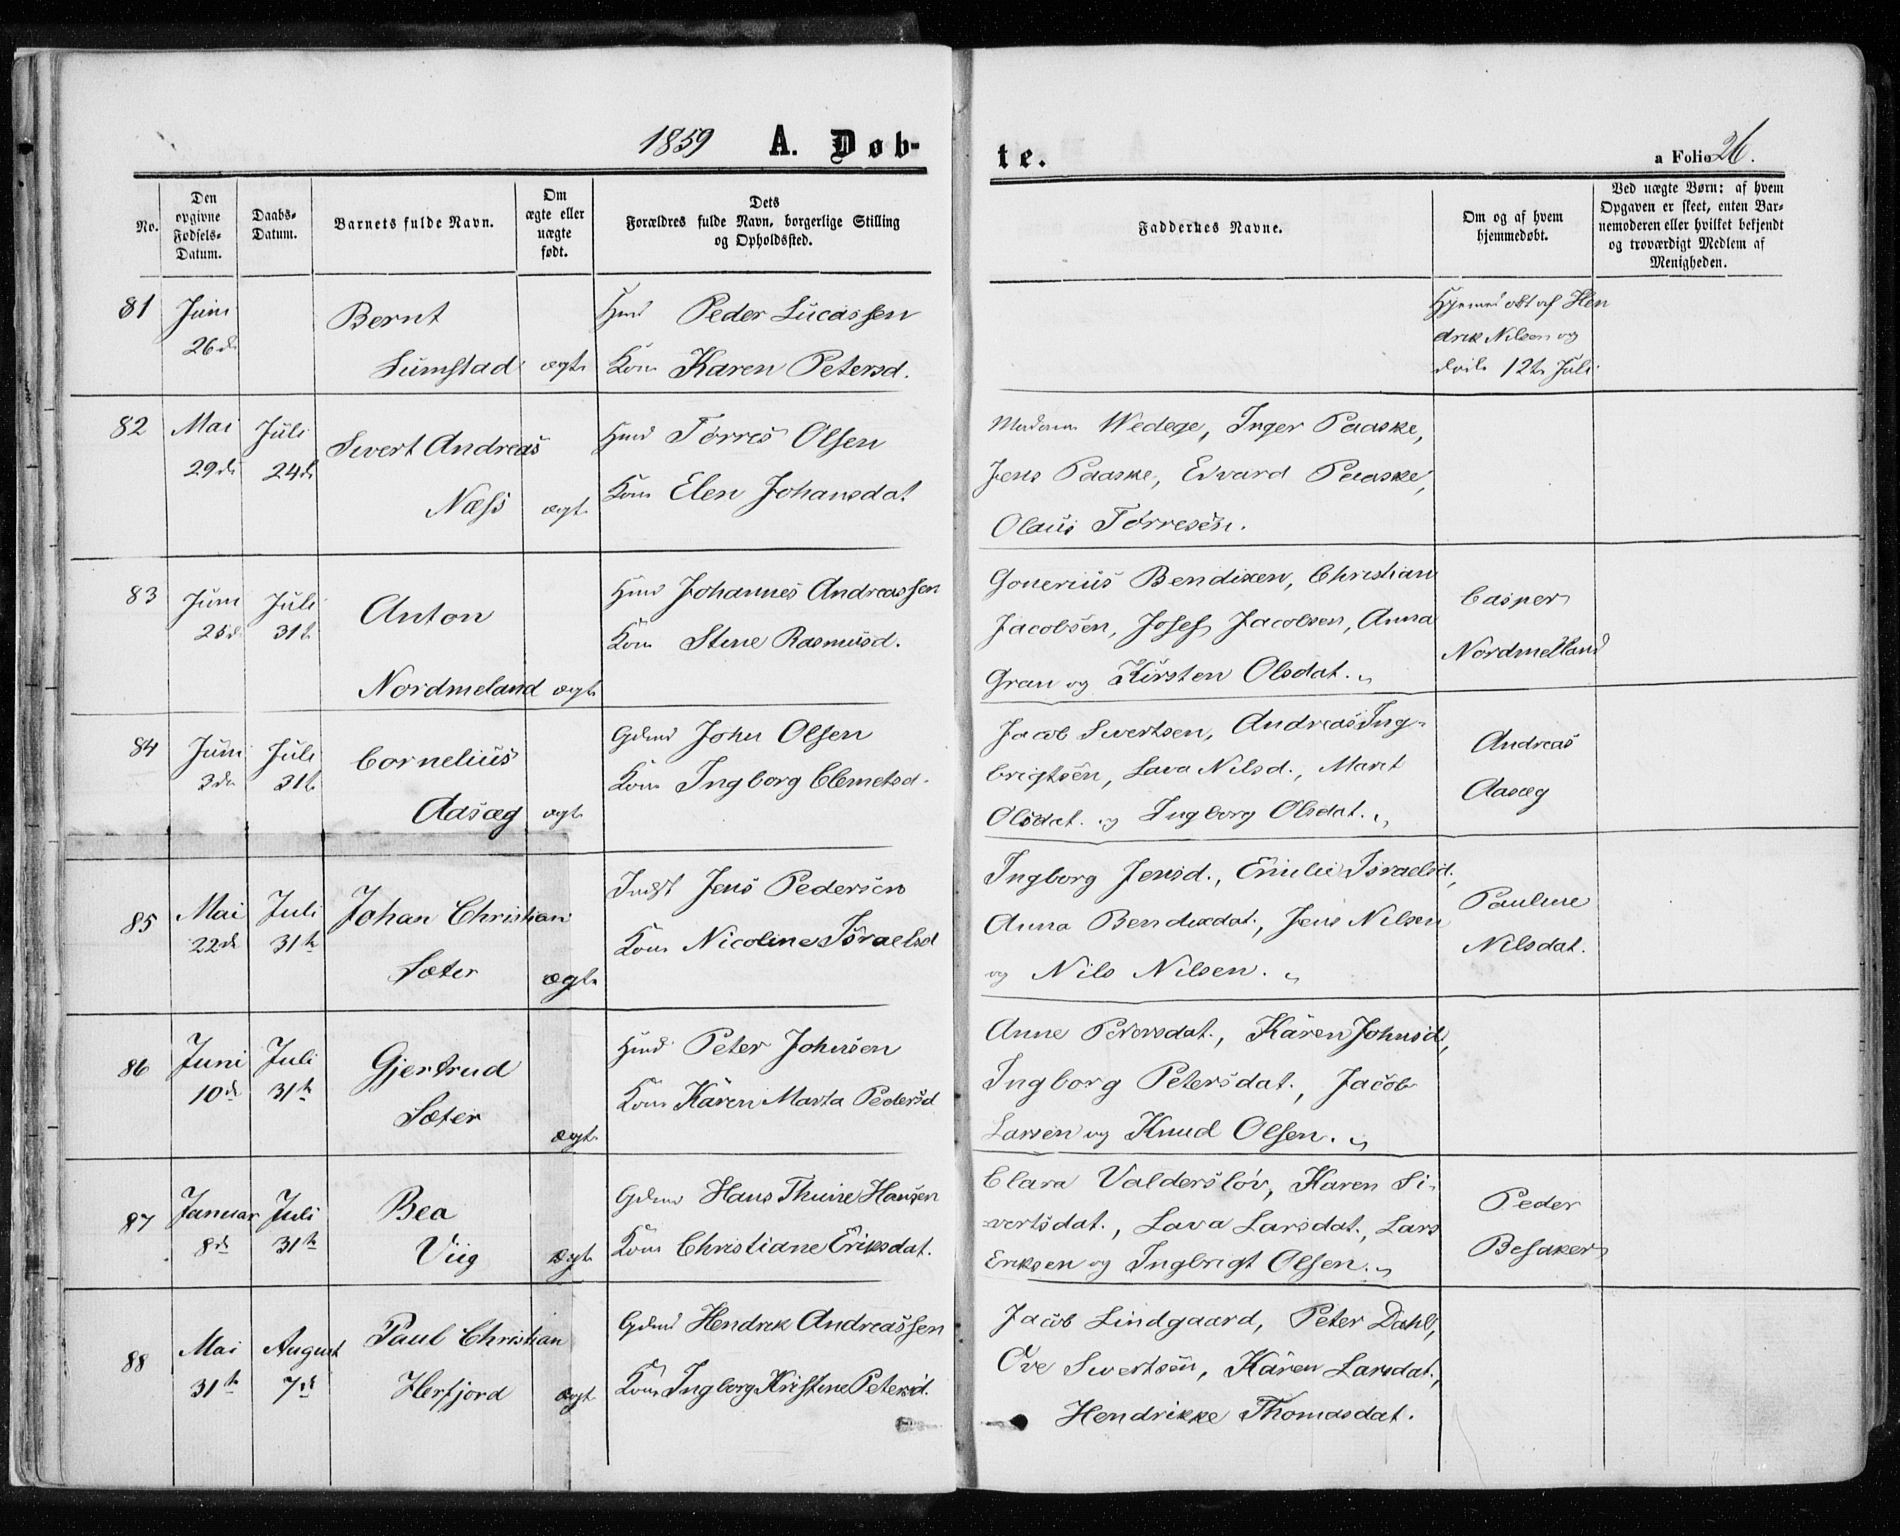 1859 A. Døb-
te. a Folio 26.
No.
Den opgivne Fødsels-Datum.
Daabs-Datum.
Barnets fulde Navn.
Om ægte eller uægte født.
Dets Forældres fulde Navn, borgerlige Stilling og Opholdssted.
Faddernes Navne.
Om og af hvem hjemmedøbt.
Ved uægte Børn: af hvem Opgaven er skeet, enten Barnemoderen eller hvilket bekjendt og troværdigt Medlem af Menigheden.
81 Juni Bernt Hmd Peder Lucassen
26de Sumstad ægt. Kone Karen Petersd.
Hjemmedøbt af Hen
drik Nilsen og
døde 12te Juli
82 Mai Juli Sivert Andreas Hmd Tørres Olsen
29de 24de Næss ægt. Kone Elen Johansdat
Madame Wedege, Inger Paaske,
Jens Paaske, Edvard Paaske,
Olaus Tørresen.
83 Juni Juli Anton Hmd Johannes Andreassen
25de 31te Kone Stine Rasmusd.
Nordmeland ægt.
Gonerius Bendixen, Christian
Jacobsen, Josef Jacobsen, Anna
Gran og Kirsten Olsdat.
Casper
Nordmelland
84 Juni Juli Cornelius Gdmd John Olsen
3de 31te Aasæg ægt. Kone Ingborg Clemetsd.
Jacob Sivertsen, Andreas Ing-
brigtsen, Lava Nilsd., Marit
Olsdat. og Ingborg Olsdat.
Andreas
Aasæg
85 Mai Juli Johan Christian Indst Jens Pedersen
22de 31te Sæter ægt. Kone Nicoline Israelsd
Ingborg Jensd., Emilie Israelsd.,
Anna Bendixdat., Jens Nilsen
og Nils Nilsen.
Pauline
Nilsdat.
86 Juni Juli Gjertrud Hmd Peter Johnsen
10de 31te Sæter ægt. Kone Karen Marta Pedersd
Anne Pedersdat., Karen Johnsd,
Ingborg Petersdat., Jacob
Larsen og Knud Olsen.
87 Januar Juli Bea Gdmd Hans Thuire Hansen
8de 31te Viig ægt. Kone Christiane Eriksdat.
Clara Valdersløv, Karen Si-
vertsdat., Lava Larsdat., Lars
Eriksen og Ingbrigt Olsen.
Peder
Besaker
88 Mai August Paul Christian Gdmd Hendrik Andreassen
31te 7de Herfjord ægt Kone Ingborg Kristine Petersd.
Jacob Lindgaard, Peter Dahl,
Ove Sivertsen, Karen Larsdat.,
Hendrikke Thomasdat.